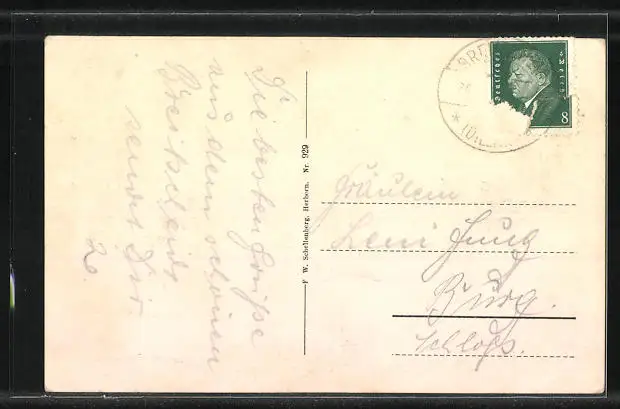 Die besten Grüße
aus dem schönen
Breitscheid
sendet Dir
F. W. Schellenberg, Herborn. Nr. 929
Deutsches Reich
8
Fräulein
Leni Jung
Burg.
Schloß.